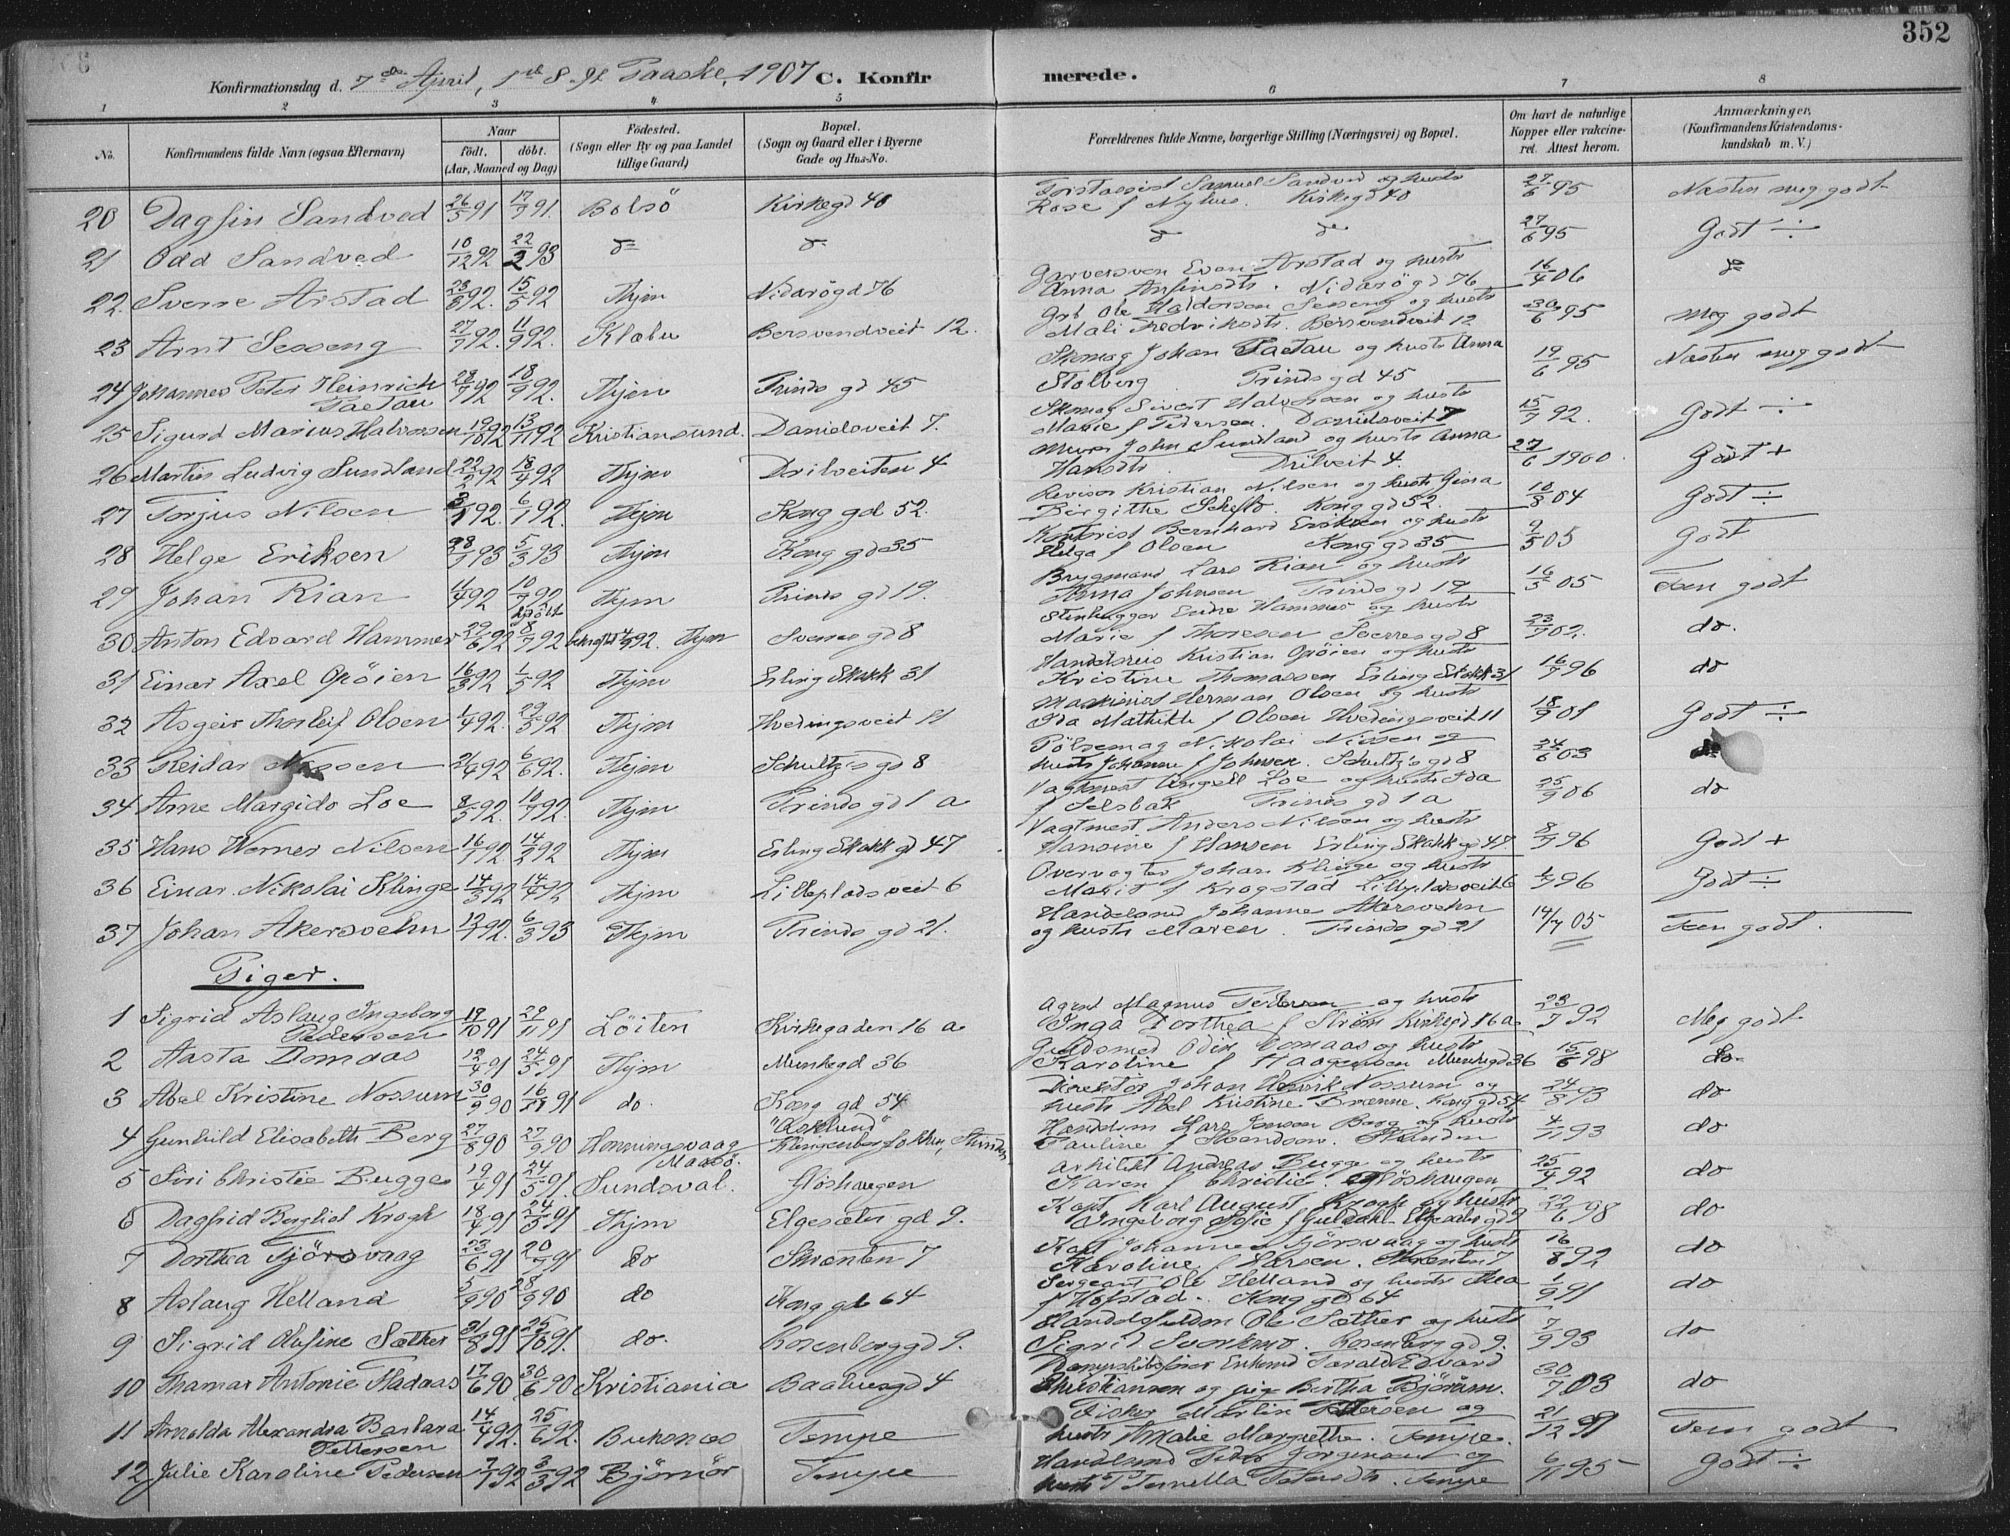 352
Konfirmationsdag d. 7de April, 1ste S. e. Paaske, 1907 C. Konfirmerede.
1 2 3 4 5 6 7 8
No. Konfirmandens fulde Navn (ogsaa Efternavn) Naar födt. döbt. (Aar, Maaned og Dag) Födested. (Sogn eller By og paa Landet tillige Gaard) Bopæl. (Sogn og Gaard eller i Byerne Gade og Hus-No. Forældrenes fulde Navne, borgerlige Stilling (Næringsvei) og Bopæl. Om havt de naturlige Kopper eller vakcineret. Attest herom. Anmærkninger. (Konfirmandens Kristendomskundskab m. V.)
20 Dagfin Sandved 26/5 91 17/7 91. Bolsö Kirkegd 40 Samuel Sandved og hustr Kirkegd 40 27/6 95 Næsten meg godt
21 Odd Sandved 10/12 92 22/2 93 do do do do 27/6 95 Godt ÷
22. Sverre Arstad 15/5 92 Thjem Nidarögd 76 Garversven Even Arstad og hustr Anna Arfinsdtr. Nidarögd 76 16/4 06 do
23 Arnt Sesseng 27/7 92. 11/9 92. Klæbu Bersvendveit 12. Ole Haldorsen Sesseng og hustr Mali Fredriksdtr. Bersvendveit 12 30/6 95 meg godt
24 Johannes Peter Heinrich Paetau 28/7 92 18/9 92. Thjem Prinds gd 45 Skomag Johan Paetau og hustr Anna Stolberg Prinds gd 45 19/6 95 Næsten meg godt
25 Sigurd Marius Halvorsen 19/10 92 13/11 92 Kristiansund. Danielsveit 7. Skomag Sivert Halvorsen og hustr Marie f Pedersen. Danielsveit 7 15/7 92. Godt ÷
26 Martin Ludvig Sundland 22/2 92 18/4 92 Thjem Drilveiten 4 Murer John Sundland og hustr Anna Hansdtr Drilveit 4. 27/6 1900. Godt +
27 Torjus Nilsen 6/1 92. Thjem Kong gd 52. Revisor Kristian Nilsen og hustr Gina Birgithe Kong gd 52. 10/8 04 Godt ÷
28 Helge Eriksen 28/1 93 5/3 93 Thjem Kong gd 35 Kontorist Bernhard Eriksen og hustr Helga f Olsen Kong gd 35 9/5 05 Godt
29 Johan Rian 4/4 92 10/7 92 Thjem Prinds gd 19. Brygmand Lars Rian og hustr Anna Johnsen Prinds gd 19 16/3 05 Tem godt
30 Anton Edvard Hammer 29/6 92 18/7 92 Thjem Sverres gd 8 Stenhugger Hammer og hustr Marie f Thoresen Sverres gd 8 23/7 02. do.
31 Einar Axel Opöien 16/3 92 1/5 92 Thjem Erling Skakk 31 Kristian Opöien og hustr Kristine Thomassen Erling Skakk 31 16/7 96 do
32 Asgeir Thorleif Olsen 1/4 92. 29/5 92 Thjem Hvedingsveit 11 Maskinist Herman Olsen og hustr Ida Mathilde f Olsen Hvedingsveit 11 18/9 01 Godt ÷
33 Reidar 21/4 92 6/6 92. Thjem Schultz's gd 8 Pölsemag Nikolai Nissen og hustr Johanne f Johnsen. Schultz's gd 8 24/6 03
34 Arne Margido Loe 8/5 92. 10/7 92. Thjem Prinds gd 1 a Vagtmest Angell Loe og hustr Ida f Selsbak Prinds gd 1 a 25/9 06 do
35 Hans Werner Nilsen 16/1 92 14/2 92 Thjem Erling Skakk gd 47 Vagtmest. Anders Nilsen og hustr Hansine f Hansen Erling Skakk gd 47 8/7 96 Godt +
36 Einar Nikolai Klinge 14/3 92 14/4 92 Thjem Lilleplads veit 6 Johan Klinge og hustr Marit f Krogstad Lilleplads veit 6 1/7 96 Godt ÷
37 Johan Akersvehn 12/7 92. 6/3 93 Thjem Prinds gd 21. Johannes Akersvehn og hustr Maren. Prinds gd 21 14/7 05 Tem godt.
Piger.
1 Sigrid Aslaug Ingeborg Pedersen 18/10 91 29/11 91 Löiten Kirkegaden 16 a Agent Magnus Pedersen og hustr Inga Dorthea f Ström Kirkegd 16 a 23/7 92 Meg godt
2 Aasta Domaas 12/4 91 24/5 91 Thjem Munkegd 36 Guldsmed Odin Domaas og hustr Karoline f Haagensen Munkegd 36 15/6 98 do
3 Abel Kristine Nossum 30/9 90 16/11 91 do. Kong gd 54 Direktör Johan Henrik Nossum og hustr Abel Kristine Brænne. Kong gd 54 24/8 93 do
4 Gunhild Elisabeth Berg 27/8 90 27/9 90 Honningsvaag Maasö. Klingenberg Handelsm Lars Jensen Berg og hustr Pauline f Svendsen. 4/11 93 do
5 Siri Christie Bugge 19/4 91 24/5 91. Sundsval. Glöshaugen Arkitekt Andreas Bugge og hustr Karen f Christie. Glöshaugen 25/4 92 do
6 Dagfrid Bergliot Krogh 18/4 91 24/5 91 Thjem Elgesæter gd 9. Kapt Karl August Krogh og hustr Ingeborg Sofie f Guldahl Elgesæter gd 9 22/6 98 do
7 Dorthea Tjörsvaag 23/6 91 20/7 91 do Skrænten 7 Kapt Johannes Tjörsvaag og hustr Karoline f Larsen. Skrænten 7 16/8 92 do
8 Aslaug Helland 5/9 90 28/9 90 do Kong gd 64 Sergeant Ole Helland og hustr Thea f Hofstad. Kong gd 64 1/9 91 do
9 Sigrid Olufine Sæther 31/8 91 25/10 91. do. Rosenborg gd 9. Handelsfuldm Ole Sæther og hustr Sigrid Svorkmo. Rosenborg gd 9. 7/9 93 do
10 Thamar Antonie Fladaas 17/6 90 30/6 90 Kristiania Baahusgd 4 Dampskibsförer Edvard Christiansen og pige Bertha Björum. 30/7 03 do
11 Arnolda Alexandra Barbara Pettersen 14/4 92. 25/6 92. Buksnes Tempe Fisker Martin Pettersen og hustr Amalie Margrethe. Tempe. 21/12 91 Tem godt
12 Julie Karoline Pedersen 7/1 92 3/3 92 Björnör Tempe Handelsmd Peder Jörgensen og hustr Pernella Petersdtr. Tempe 6/11 95 Godt ÷